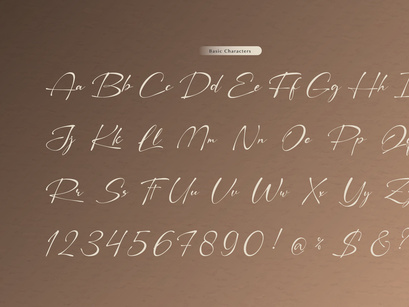 Basic Characters
Aa Bb Cc Dd Ee Ff Gg Hh I
Jj Kk Ll Mm Nn Oo Pp Q
Rr Ss Tt Uu Vv Ww Xx Yy Z
1234567890! @ % $ & ?